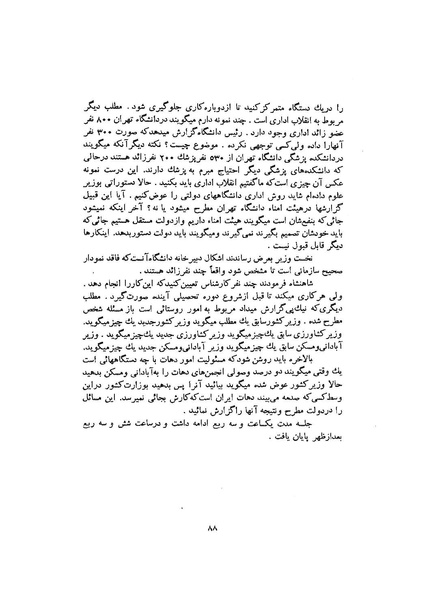 را در یك دستگاه متمرکز کنید تا از دوباره کاری جلوگیری شود. مطلب دیگر
مربوط به انقلاب اداری است. چند نمونه دارم میگویند در دانشگاه تهران ۸۰۰ نفر
عضو زائد اداری وجود دارد. رئیس دانشگاه گزارش میدهد که صورت ۳۰۰ نفر
آنها را داده ولی کسی توجهی نکرده. موضوع چیست؟ نکته دیگر آنکه میگویند
در دانشکده پزشکی دانشگاه تهران از ۵۳۰ نفر پزشك ۲۰۰ نفر زائد هستند در حالی
که دانشکده‌های پزشکی دیگر احتیاج مبرم به پزشك دارند. این درست نمونه
عکس آن چیزی است که ما گفتیم انقلاب اداری باید بکنید. حالا دستوراتی بوزیر
علوم داده‌ام شاید روش اداری دانشگاههای دولتی را عوض کنیم. آیا این قبیل
گزارشها در هیئت امناء دانشگاه تهران مطرح میشود یا نه؟ آخر اینکه نمیشود
جائی که بنفع شان است میگویند هیئت امناء داریم و از دولت مستقل هستیم جائی که
باید خودشان تصمیم بگیرند نمی‌گیرند و میگویند باید دولت دستور بدهد. اینکارها
دیگر قابل قبول نیست.
نخست وزیر بعرض رساندند اشکال دبیرخانه دانشگاه آنست که فاقد نمودار
صحیح سازمانی است تا مشخص شود واقعاً چند نفر زائد هستند.
شاهنشاه فرمودند چند نفر کارشناس تعیین کنید که این کار را انجام دهد.
ولی هر کاری میکنند تا قبل از شروع دوره تحصیلی آینده صورت گیرد. مطلب
دیگری که نیك پی گزارش میداد مربوط به امور روستائی است باز مسئله شخص
مطرح شده. وزیر کشور سابق یك مطلب میگوید وزیر کشور جدید یك چیز میگوید.
وزیر کشاورزی سابق یك چیز میگوید وزیر کشاورزی جدید یك چیز میگوید. وزیر
آبادانی و مسکن سابق یك چیز میگوید وزیر آبادانی و مسکن جدید یك چیز میگوید.
بالاخره باید روشن شود که مسئولیت امور دهات با چه دستگاههائی است
یك وقتی میگویند دو درصد وصولی انجمن‌های دهات را به آبادانی و مسکن بدهید
حالا وزیر کشور عوض شده میگوید بیائید آنرا پس بدهید بوزارت کشور در این
وسط کسی که صدمه می‌بیند دهات ایران است که کارش بجائی نمیرسد. این مسائل
را در دولت مطرح و نتیجه آنها را گزارش نمائید.
جلسه مدت یکساعت و سه ربع ادامه داشت و در ساعت شش و سه ربع
بعد از ظهر پایان یافت.
۸۸